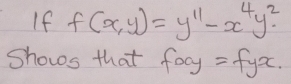 If f(x,y) = y'' - x⁴y².
Shows that fxy = fyx.